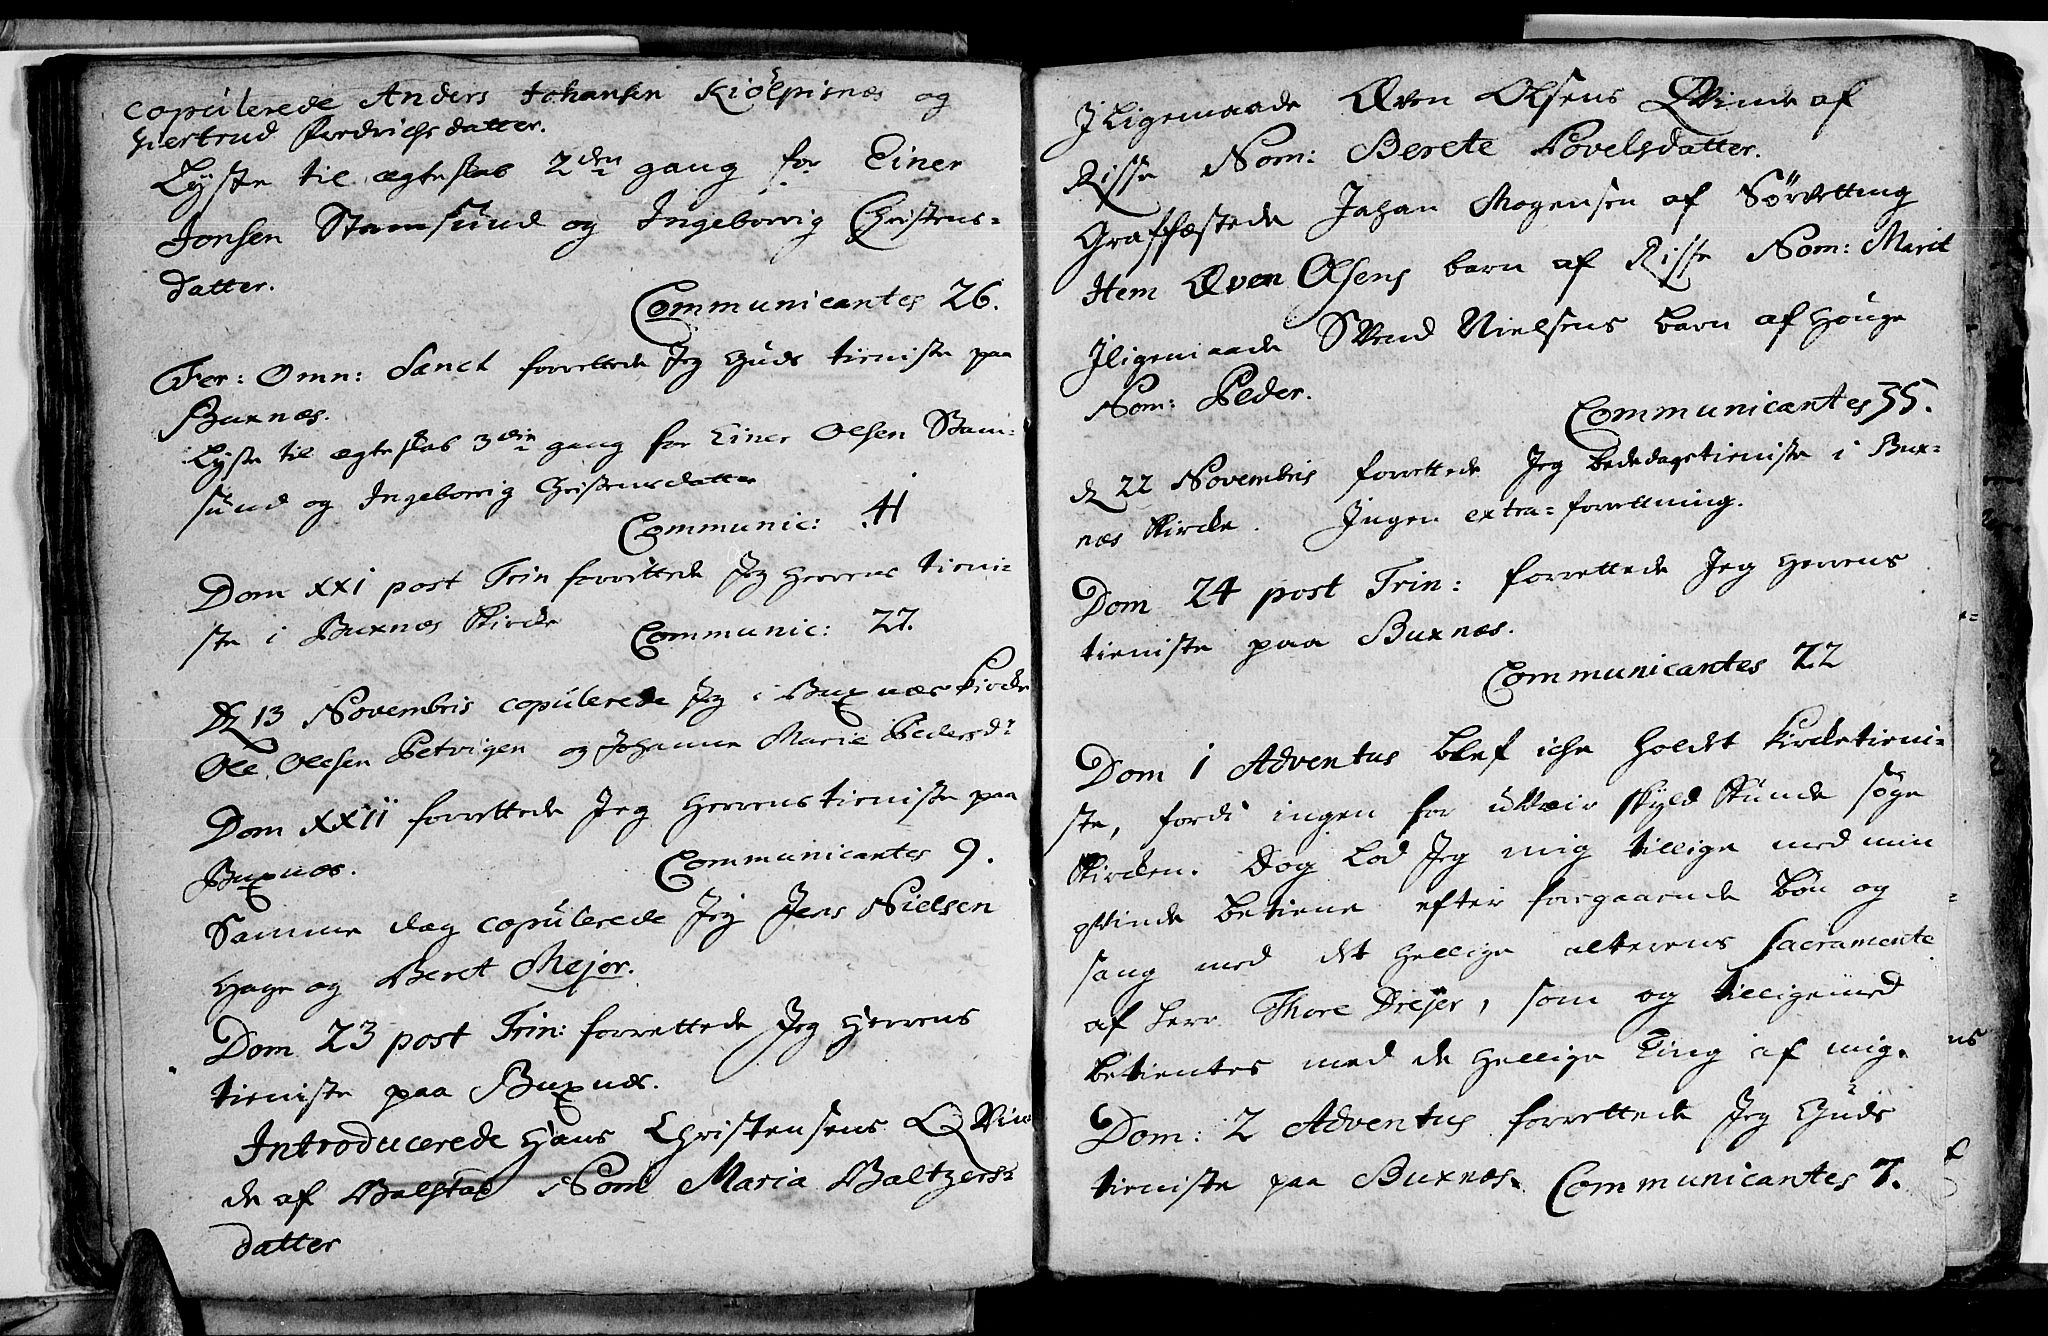 copulerede Anders Johansen Kiölpisnæs og
Giertrud Fredrichsdatter.
Lyste til ægteskab 2den gang for Einer
Jonsen Stamsund og Ingeborrig Christens-
datter.
Communicantes 26.
Fer: Omn: Sanct forrettede Jeg Guds tieniste paa
Buxnæs.
Lyste til ægteskab 3die gang for Einer Olsen Stam-
sund og Ingeborrig Christensdatter
Communic: 41
Dom XXI post Trin forrettede Jeg Herrens tieni-
ste i Buxnæs Kirke
Communic: 27.
D 13 Novembris copulerede Jeg i Buxnæs Kirke
Ole Olesen Petvigen og Johanna Marie Pedersdr
Dom XXII forrettede Jeg Herrens tieniste paa
Buxnæs.
Communicantes 9.
Samme dag copulerede Jeg Jens Nielsen
Hage og Beret Mejer.
Dom 23 post Trin: forrettede Jeg Herrens
tieniste paa Buxnæs.
Introducerede Hans Christensens Qvin
de af Balstad Nom Maria Baltzers-
datter
Jligemaade Even Olsens Qvinde af
Risse Nom: Berete Povelsdatter.
Graffæstede Jahan Mogensen af Sörvetting
Item Even Olsens barn af Risse Nom: Marit
Jligemaade Svend Nielsens barn af Houge
Nom: Peder.
Communicantes 35.
d 22 Novembris forrettede Jeg bededagstieniste i Bux-
næs Kirke. Ingen extra-forrettning.
Dom 24 post Trin: forrettede Jeg Herrens
tieniste paa Buxnæs.
Communicantes 22
Dom 1 Adventus blef iche holdt kirketieni-
ste, fordi ingen for uveir skyld kunde søge
Kirken. Dog lod Jeg mig tillige med min
qvinde betiene efter foregaaende bön og
sang med det hellige alterens sacramente
af herr Thore Drejer, som og tilligemed
betientes med de hellige Ting af mig.
Dom: 2 Adventus forrettede Jeg Guds
tieniste paa Buxnæs. Communicantes 7.